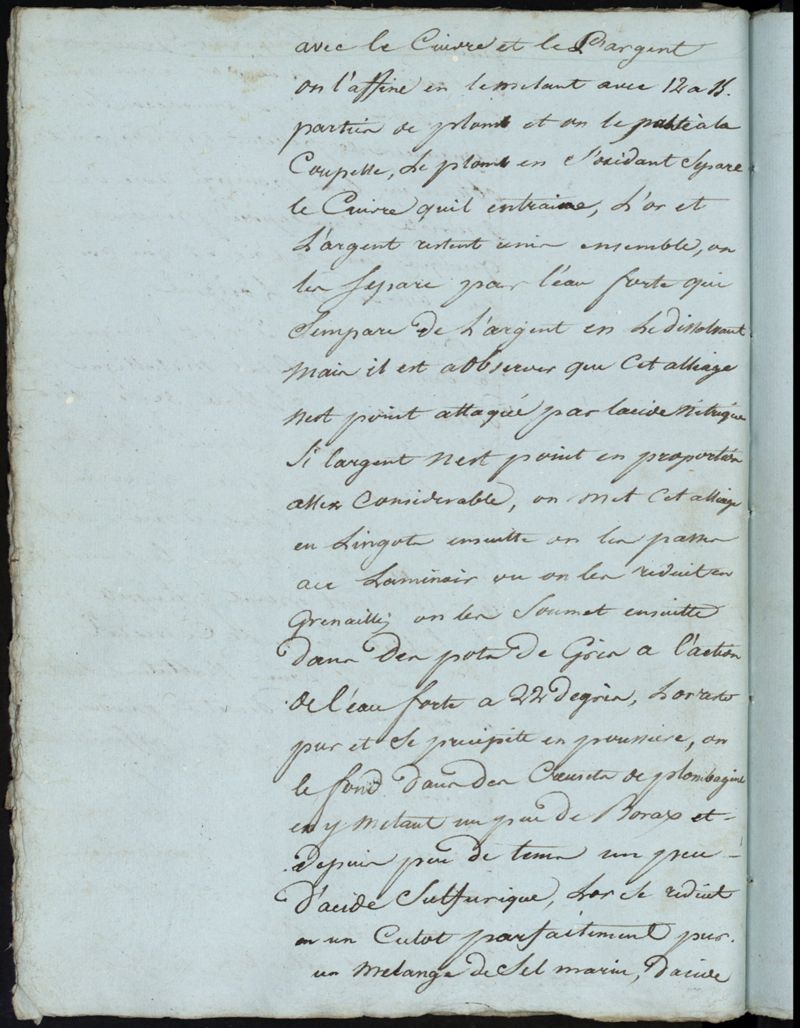 avec le Cuivre et le L'argent
on l'affine en le melant avec 12 a 15.
parties de plomb et on le passe à la
Coupelle, Le plomb en S'oxidant Separe
le Cuivre quil entraine, L'or et
L'argent restent unis ensemble, on
les Separe par l'eau forte qui
Sempare de L'argent en Le dissolvant
Mais il est a observer que Cet alliage
nest point attaqué par lacide Nitrique
Si largent n'est point en proportion
assez Considerable, on met Cet alliage
en Lingots ensuitte on les passe
au Laminoir ou on les reduit en
Grenailles on les Soumet ensuitte
dans des pots de Grès a l'action
de l'eau forte a 22 degrés, L'or reste
pur et Se precipitte en poussiere, on
le fond dans des Creusets de plombagine
en y Metant un peu de Borax et
depuis peu de tems un peu
d'acide Sulfurique, L'or Se reduit
en un Culot parfaitement pur.
un Melange de Sel marin, d'acide